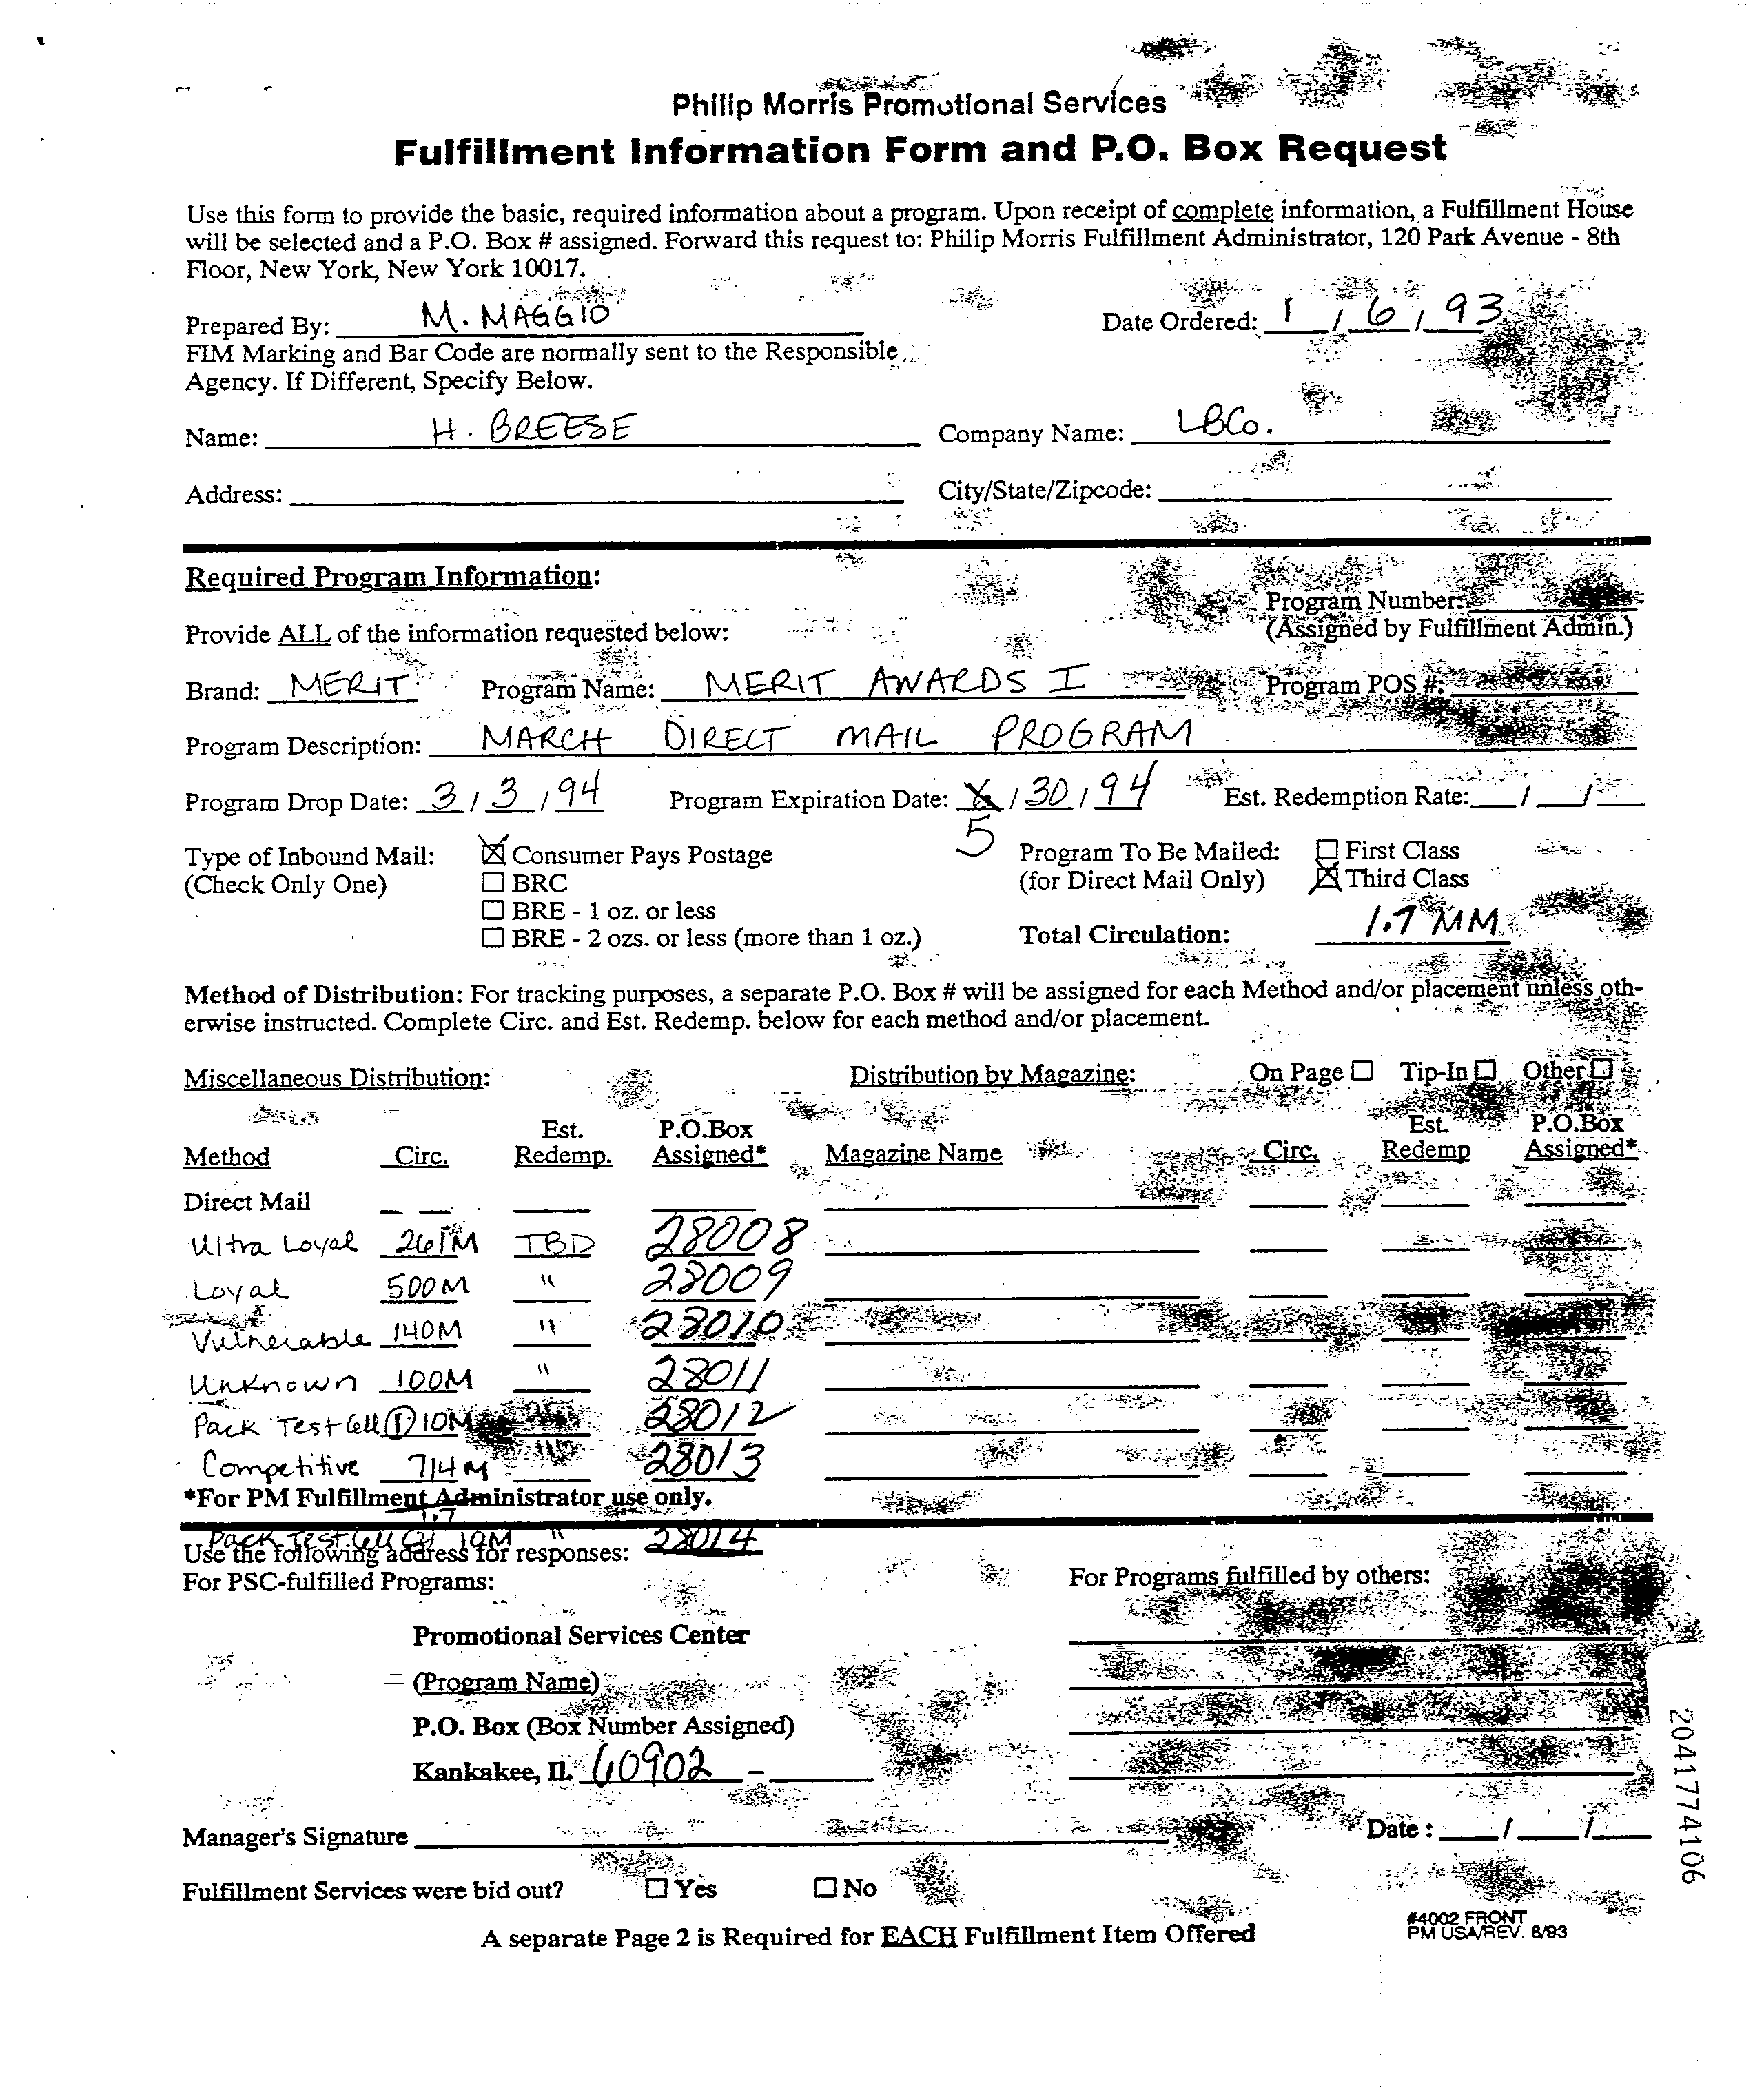 Philip Morris Promotional Services
Fulfillment Information Form and P.O. Box Request
Use this form to provide the basic, required information about a program. Upon receipt of complete information, a Fulfillment House
will be selected and a P.O. Box # assigned. Forward this request to: Philip Morris Fulfillment Administrator, 120 Park Avenue - 8th
Floor, New York, New York 10017.
Prepared By: M. MAGGIO Date Ordered: 1 / 6 / 93
FIM Marking and Bar Code are normally sent to the Responsible
Agency. If Different, Specify Below.
Name: H. BREESE Company Name: LBCo.
Address: City/State/Zipcode:
Required Program Information:
Program Number:
Provide ALL of the information requested below: (Assigned by Fulfillment Admin.)
Brand: MERIT Program Name: MERIT AWARDS I Program POS #:
Program Description: MARCH DIRECT MAIL PROGRAM
Program Drop Date: 3 / 3 / 94 Program Expiration Date: 6 / 30 / 94 Est. Redemption Rate: / /
5
Type of Inbound Mail: ☒ Consumer Pays Postage Program To Be Mailed: ☐ First Class
(Check Only One) ☐ BRC (for Direct Mail Only) ☒ Third Class
☐ BRE - 1 oz. or less
☐ BRE - 2 ozs. or less (more than 1 oz.) Total Circulation: 1.7 MM
Method of Distribution: For tracking purposes, a separate P.O. Box # will be assigned for each Method and/or placement unless oth-
erwise instructed. Complete Circ. and Est. Redemp. below for each method and/or placement.
Miscellaneous Distribution: Distribution by Magazine: On Page ☐ Tip-In ☐ Other ☐
Est. P.O.Box Est. P.O.Box
Method Circ. Redemp. Assigned* Magazine Name Circ. Redemp Assigned*
Direct Mail
Ultra Loyal 261M TBD 28008
Loyal 500M " 28009
Vulnerable 140M " 28010
Unknown 100M " 28011
Pack Test Cell (1) 10M 28012
Competitive 714M " 28013
*For PM Fulfillment Administrator use only.
1.7
Pack Test Cell (2) 10M " 28014
Use the following address for responses:
For PSC-fulfilled Programs: For Programs fulfilled by others:
Promotional Services Center
(Program Name)
P.O. Box (Box Number Assigned)
Kankakee, Il. 60902 -
Manager's Signature Date : / /
Fulfillment Services were bid out? ☐ Yes ☐ No
A separate Page 2 is Required for EACH Fulfillment Item Offered
#4002 FRONT
PM USA/REV. 8/93
2041774106